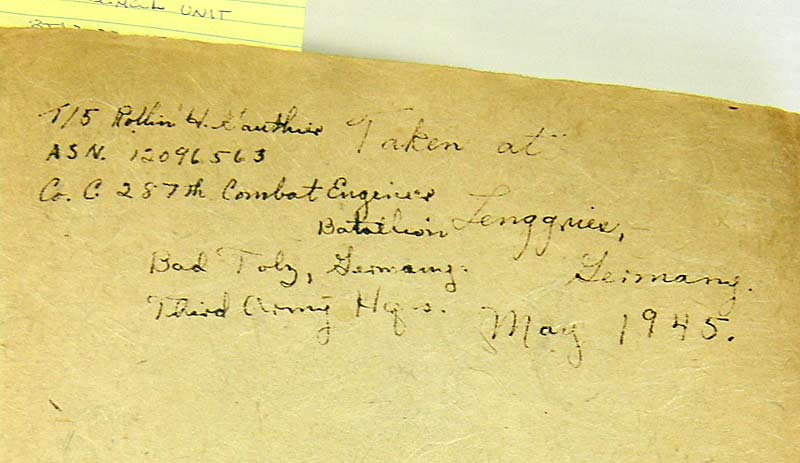 UNIT
T/5 Rollin H. Gauthier
ASN. 12096563
Co. C 287th Combat Engineer
Batallion
Bad Tolz, Germany.
Third Army Hqs.
Taken at
Lenggries,
Germany.
May 1945.